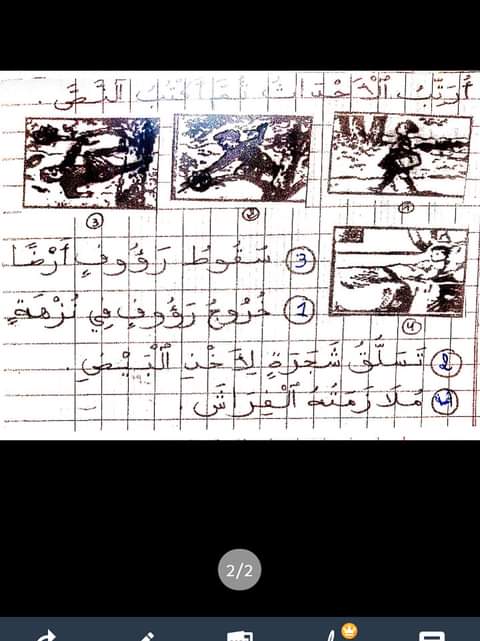 أُرَتِّبُ الْأَحْدَاثَ ثُمَّ أَكْتُبُ النَّصَّ.
3 2 1
4
3 سُقُوطُ رَؤُوفٍ أَرْضًا
1 خُرُوجُ رَؤُوفٍ فِي نُزْهَةٍ
2 تَسَلُّقُ شَجَرَةٍ لِأَخْذِ الْبَيْضِ.
4 مُلَازَمَتُهُ الْفِرَاشَ.
2/2